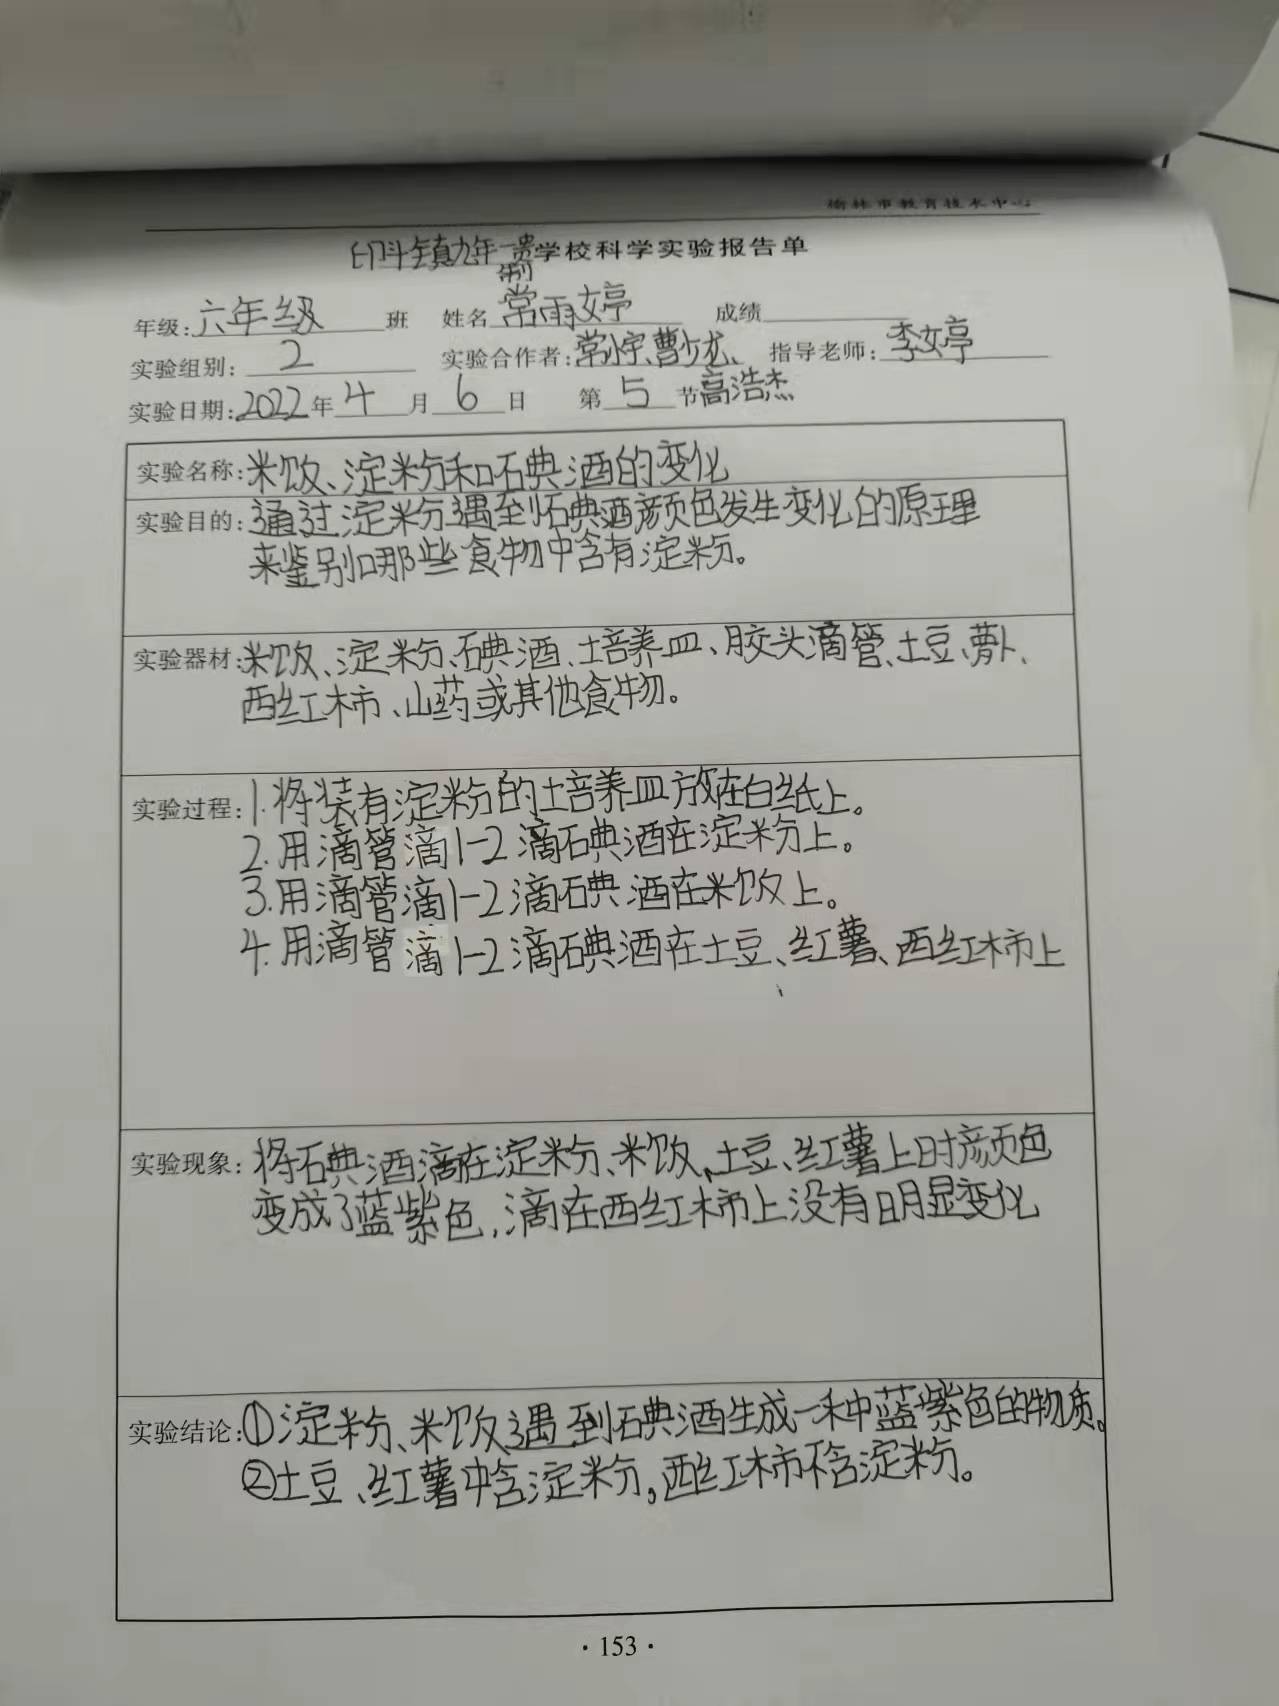 榆林市教育技术中心
印斗镇九年一贯制学校科学实验报告单
年级:六年级 班 姓名 常雨婷 成绩
实验组别: 2 实验合作者:常宇、曹龙、 指导老师:李婷
实验日期:2022年 4 月 6 日 第 5 节高浩杰
实验名称:米饭、淀粉和碘酒的变化
实验目的:通过淀粉遇到碘酒颜色发生变化的原理
来鉴别哪些食物中含有淀粉。
实验器材:米饭、淀粉、碘酒、培养皿、胶头滴管、土豆、萝卜、
西红柿、山药或其他食物。
实验过程:1.将装有淀粉的培养皿放在白纸上。
2.用滴管滴1-2滴碘酒在淀粉上。
3.用滴管滴1-2滴碘酒在米饭上。
4.用滴管滴1-2滴碘酒在土豆、红薯、西红柿上
实验现象:将碘酒滴在淀粉、米饭、土豆、红薯上时颜色
变成了蓝紫色,滴在西红柿上没有明显变化
实验结论:①淀粉、米饭遇到碘酒生成一种蓝紫色的物质。
②土豆、红薯中含淀粉。西红柿不含淀粉。
·153·